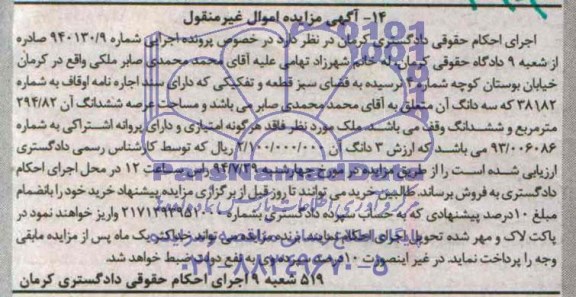 ۱۴- آگهی مزایده اموال غیرمنقول
اجرای احکام حقوقی دادگستری کرمان در نظر دارد در خصوص پرونده اجرایی شماره ۹۴۰۱۳۰/۹ صادره
از شعبه ۹ دادگاه حقوقی کرمان له خانم شهرزاد تهامی علیه آقای محمد محمدی صابر ملکی واقع در کرمان
خیابان بوستان کوچه شماره ۲ نرسیده به فضای سبز قطعه و تفکیکی که دارای سند اجاره نامه اوقاف به شماره
۳۸۱۸۲ که سه دانگ آن متعلق به آقای محمد محمدی صابر می باشد و مساحت عرصه ششدانگ آن ۲۹۴/۸۲
مترمربع و ششدانگ وقف می باشد. ملک مورد نظر فاقد هرگونه امتیازی و دارای پروانه اشتراکی به شماره
۹۳/۰۰۶۰۸۶ می باشد که ارزش ۳ دانگ آن ۲/۱۰۰/۰۰۰/۰۰۰ ریال که توسط کارشناس رسمی دادگستری
ارزیابی شده است را از طریق مزایده در مورخ چهارشنبه ۹۴/۷/۲۹ راس ساعت ۱۲ در محل اجرای احکام
دادگستری به فروش برساند. طالبین خرید می توانند تا روز قبل از برگزاری مزایده پیشنهاد خرید خود را بانضمام
مبلغ ۱۰درصد پیشنهادی که به حساب سپرده دادگستری بشماره واریز خواهند نمود در
پاکت لاک و مهر شده تحویل اجرای احکام نمایند برنده مزایده می تواند حداکثر یک ماه پس از مزایده مابقی
وجه را پرداخت نماید. در غیر اینصورت ۱۰درصد سپرده وی به نفع دولت ضبط خواهد شد.
۵۱۹ شعبه ۹ اجرای احکام حقوقی دادگستری کرمان
۰۲۱-۸۸۳۴۹۶۷۰-۵